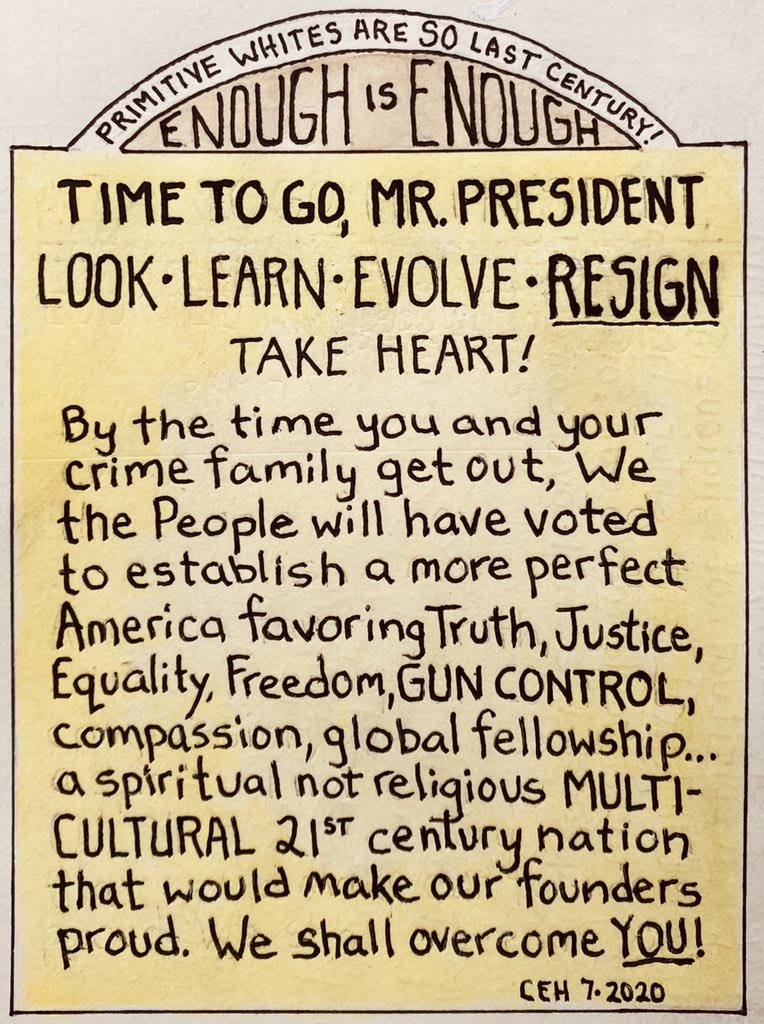 PRIMITIVE WHITES ARE SO LAST CENTURY!
ENOUGH IS ENOUGH
TIME TO GO, MR. PRESIDENT
LOOK · LEARN · EVOLVE · RESIGN
TAKE HEART!
By the time you and your
crime family get out, We
the People will have voted
to establish a more perfect
America favoring Truth, Justice,
Equality, Freedom, GUN CONTROL,
compassion, global fellowship...
a spiritual not religious MULTI-
CULTURAL 21ST century nation
that would make our founders
proud. We shall overcome YOU!
CEH 7.2020